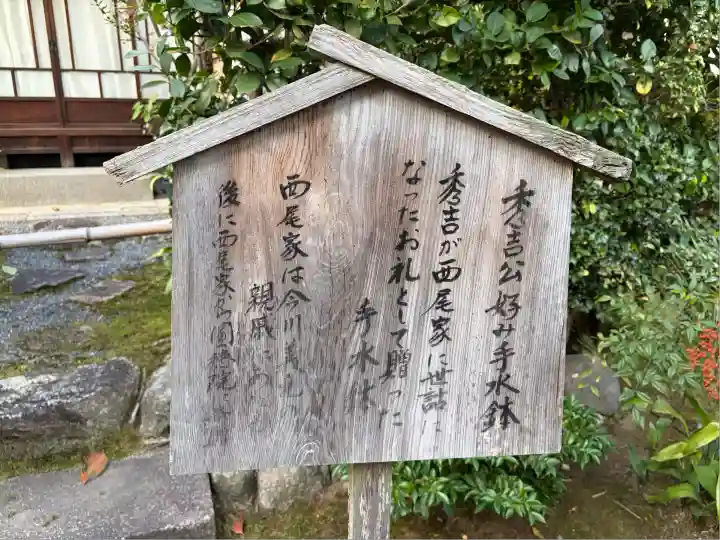 秀吉公好み手水鉢
秀吉が西尾家に世話に
なったお礼として贈った
手水鉢
西尾家は今川義元の
親戚にあ
後に西尾家